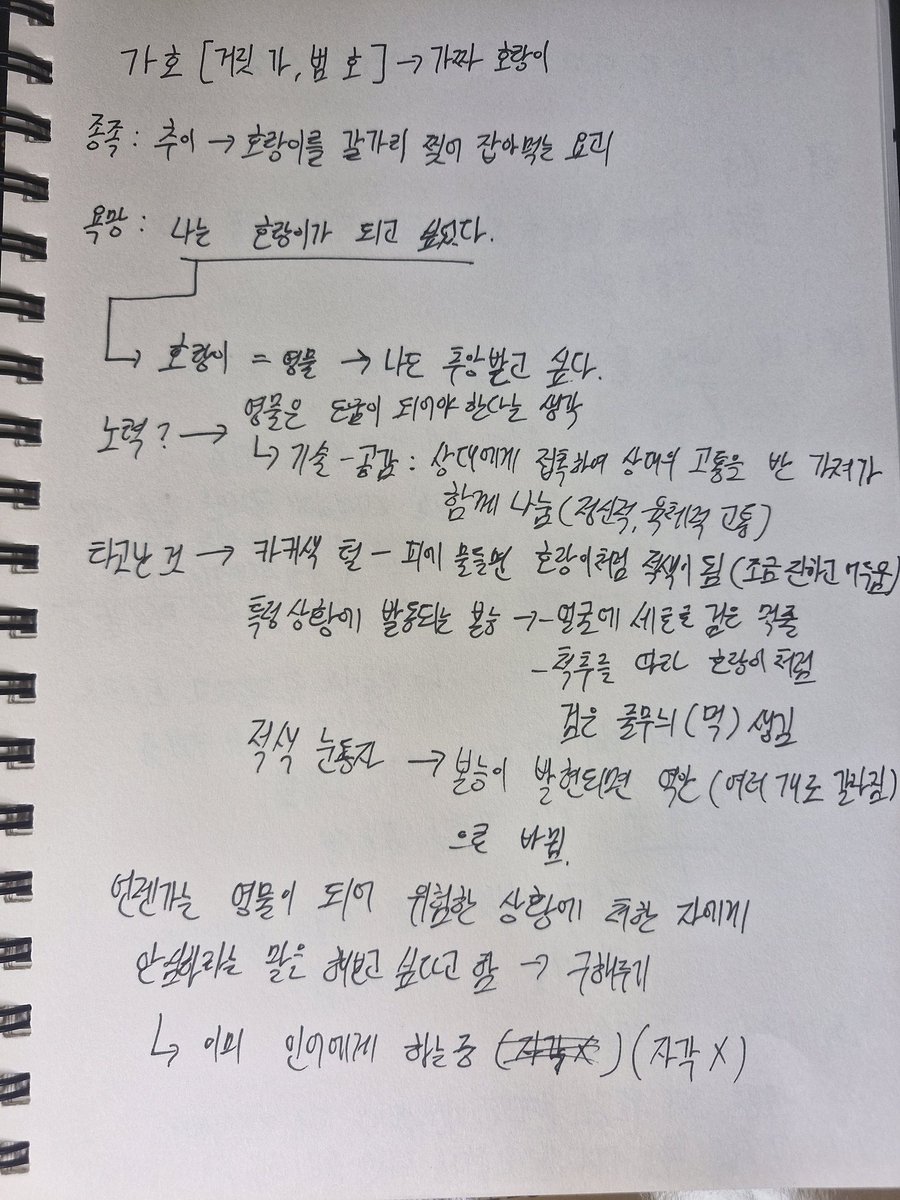 가호 [거짓 가, 범 호] → 가짜 호랑이
종족 : 추이 → 호랑이를 갈가리 찢어 잡아먹는 요괴
욕망 : 나는 호랑이가 되고 싶었다.
→ 호랑이 = 영물 → 나도 추앙받고 싶다.
노력? → 영물은 도움이 되어야 한다는 생각
↳ 기술 - 공감 : 상대에게 접촉하여 상대의 고통을 반 가져가
함께 나눔 (정신적, 육체적 고통)
타고난 것 → 카키색 털 - 피에 물들면 호랑이처럼 적색이 됨 (조금 진하고 어두움)
특정상황에 발동되는 본능 → - 얼굴에 세로로 검은 먹줄
- 척추를 따라 호랑이처럼
검은 줄무늬 (먹) 생김
적색 눈동자 → 본능이 발현되면 역안 (여러 개로 갈라짐)
으로 바뀜.
언젠가는 영물이 되어 위험한 상황에 처한 자에게
안심하라는 말을 해보고 싶다고 함 → 구해주기
↳ 이미 인어에게 하는중 (자각 X) (자각 X)